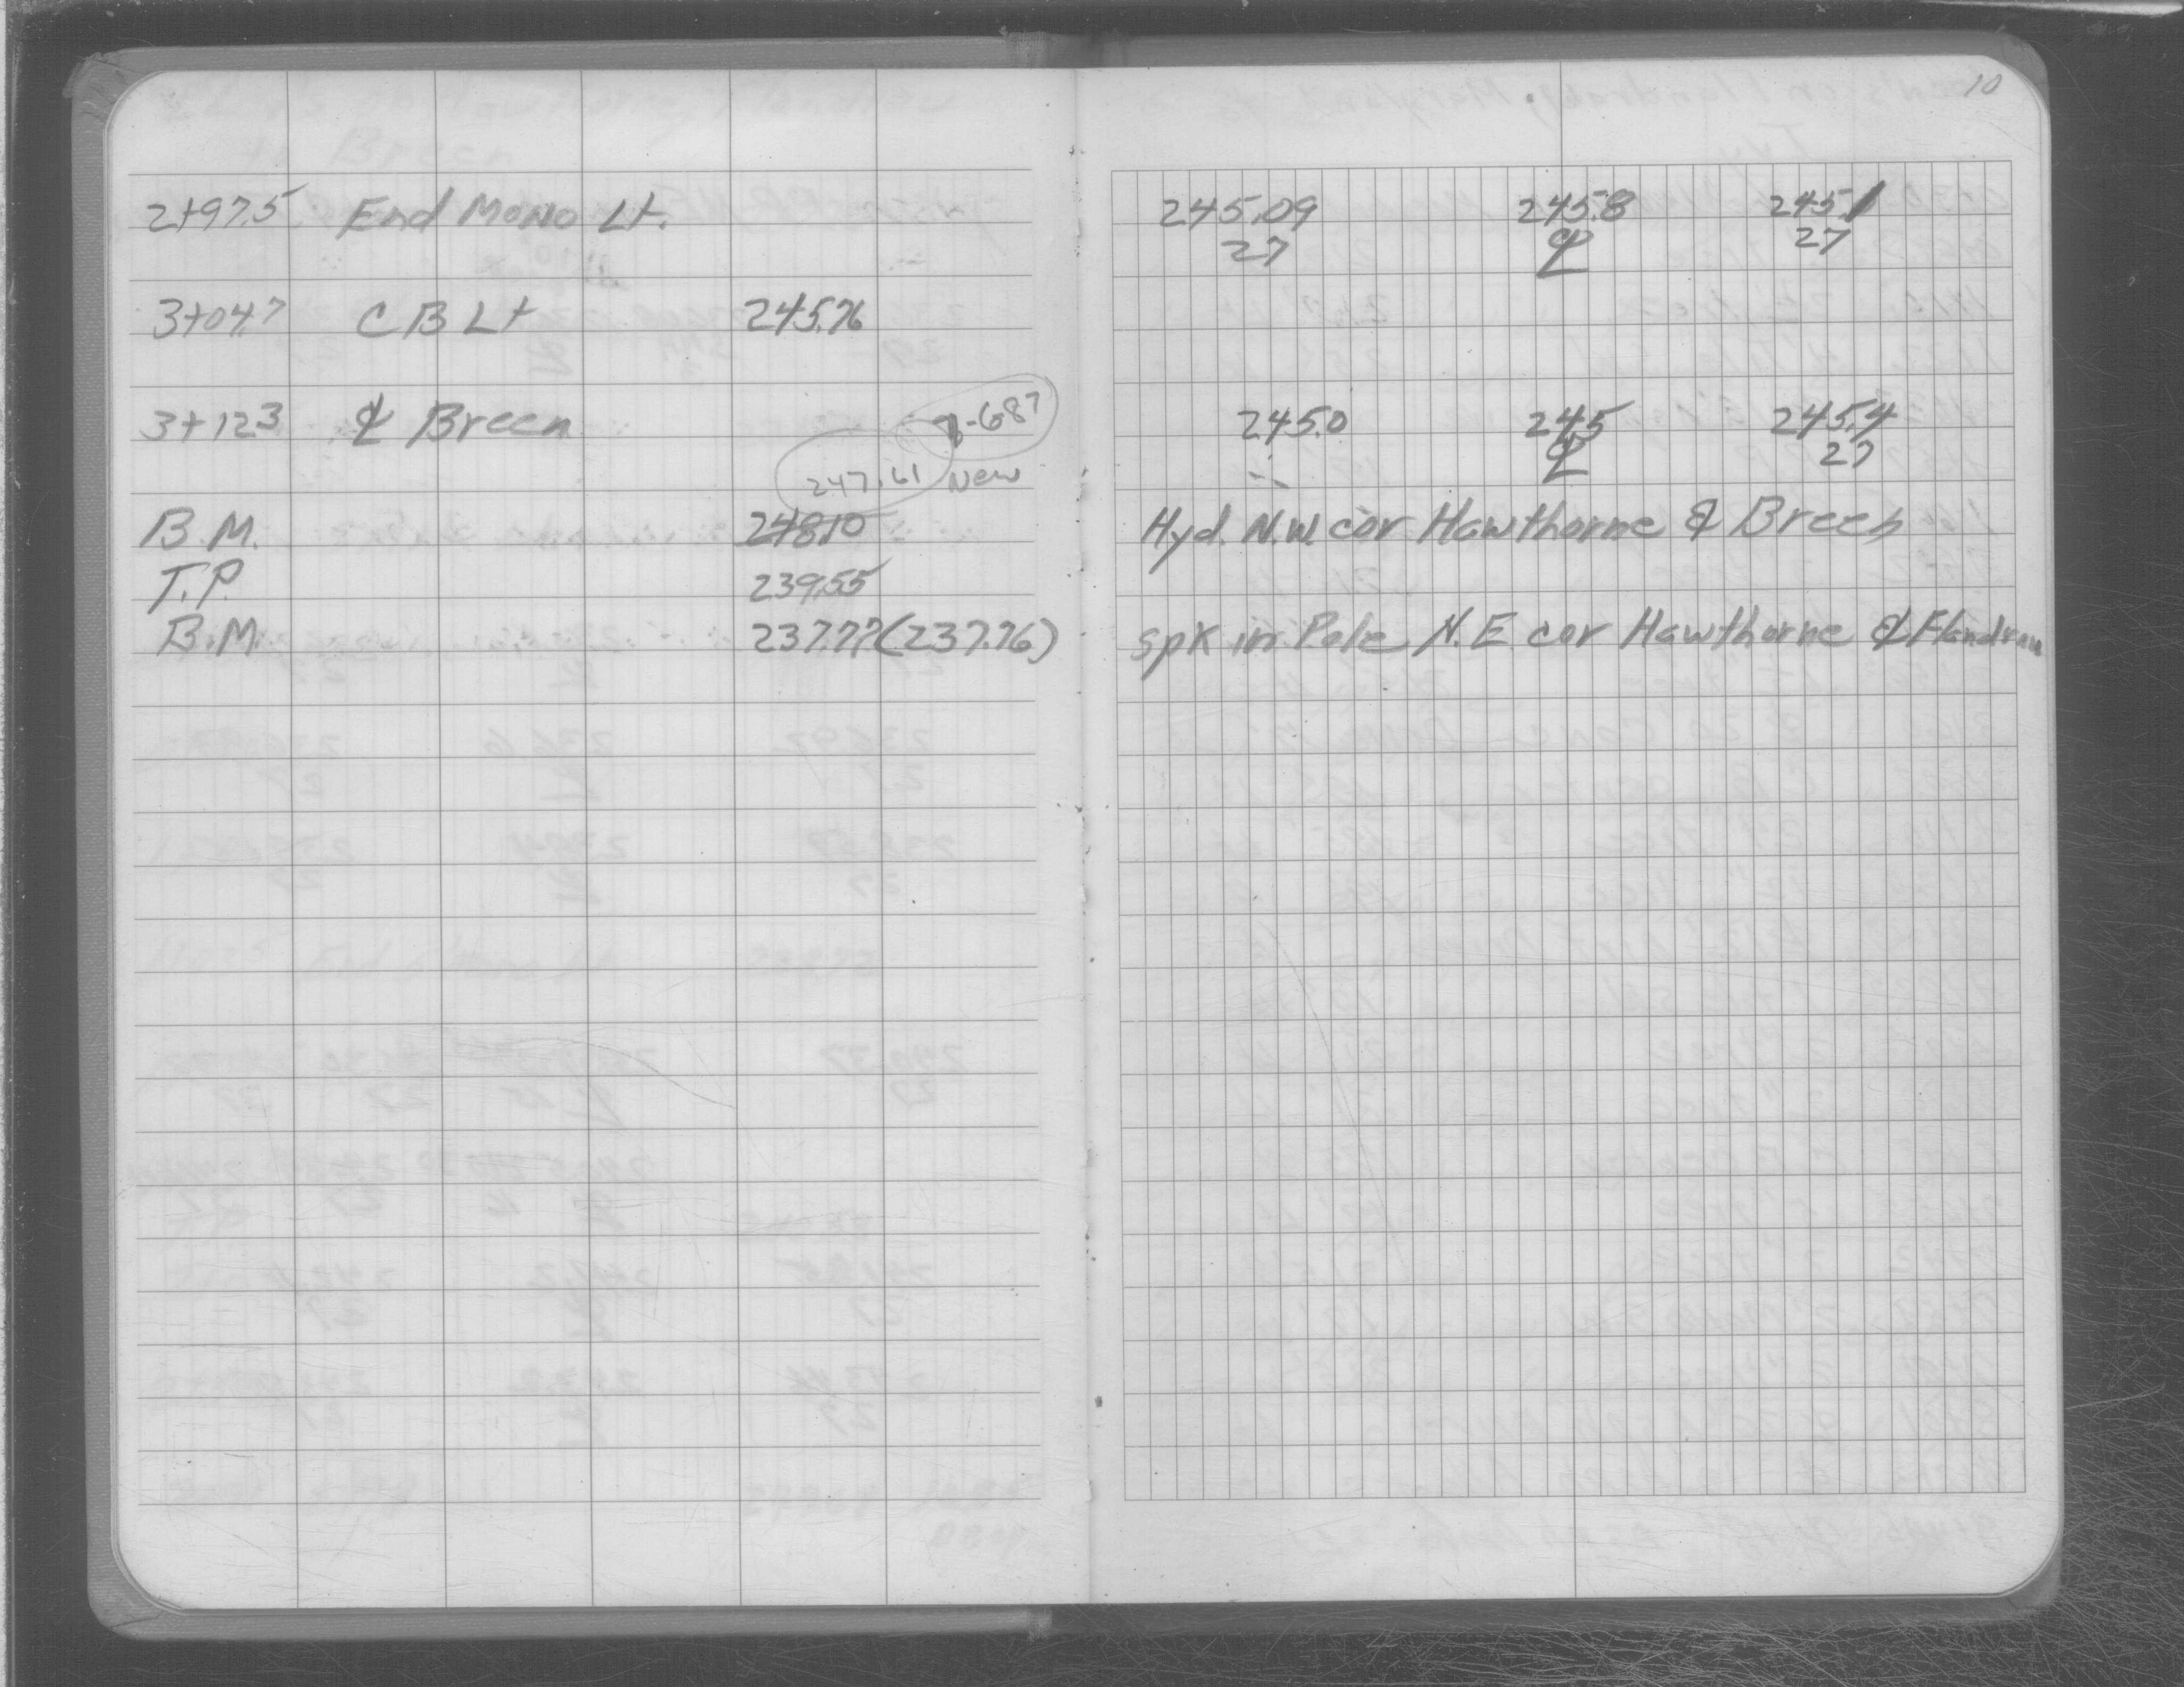 10
2+97.5 End Mono Lt. 245.09 245.8 245.1
27 ℄ 27
3+04.7 C B Lt 245.76
3+12.3 ℄ Breen 245.0 245 245.4
℄ 27
247.61 New
B.M. 248.10 Hyd. N.W. cor Hawthorne & Breen
T.P. 239.55
B.M. 237.77 (237.76) spk in Pole N.E. cor Hawthorne & Flandrau